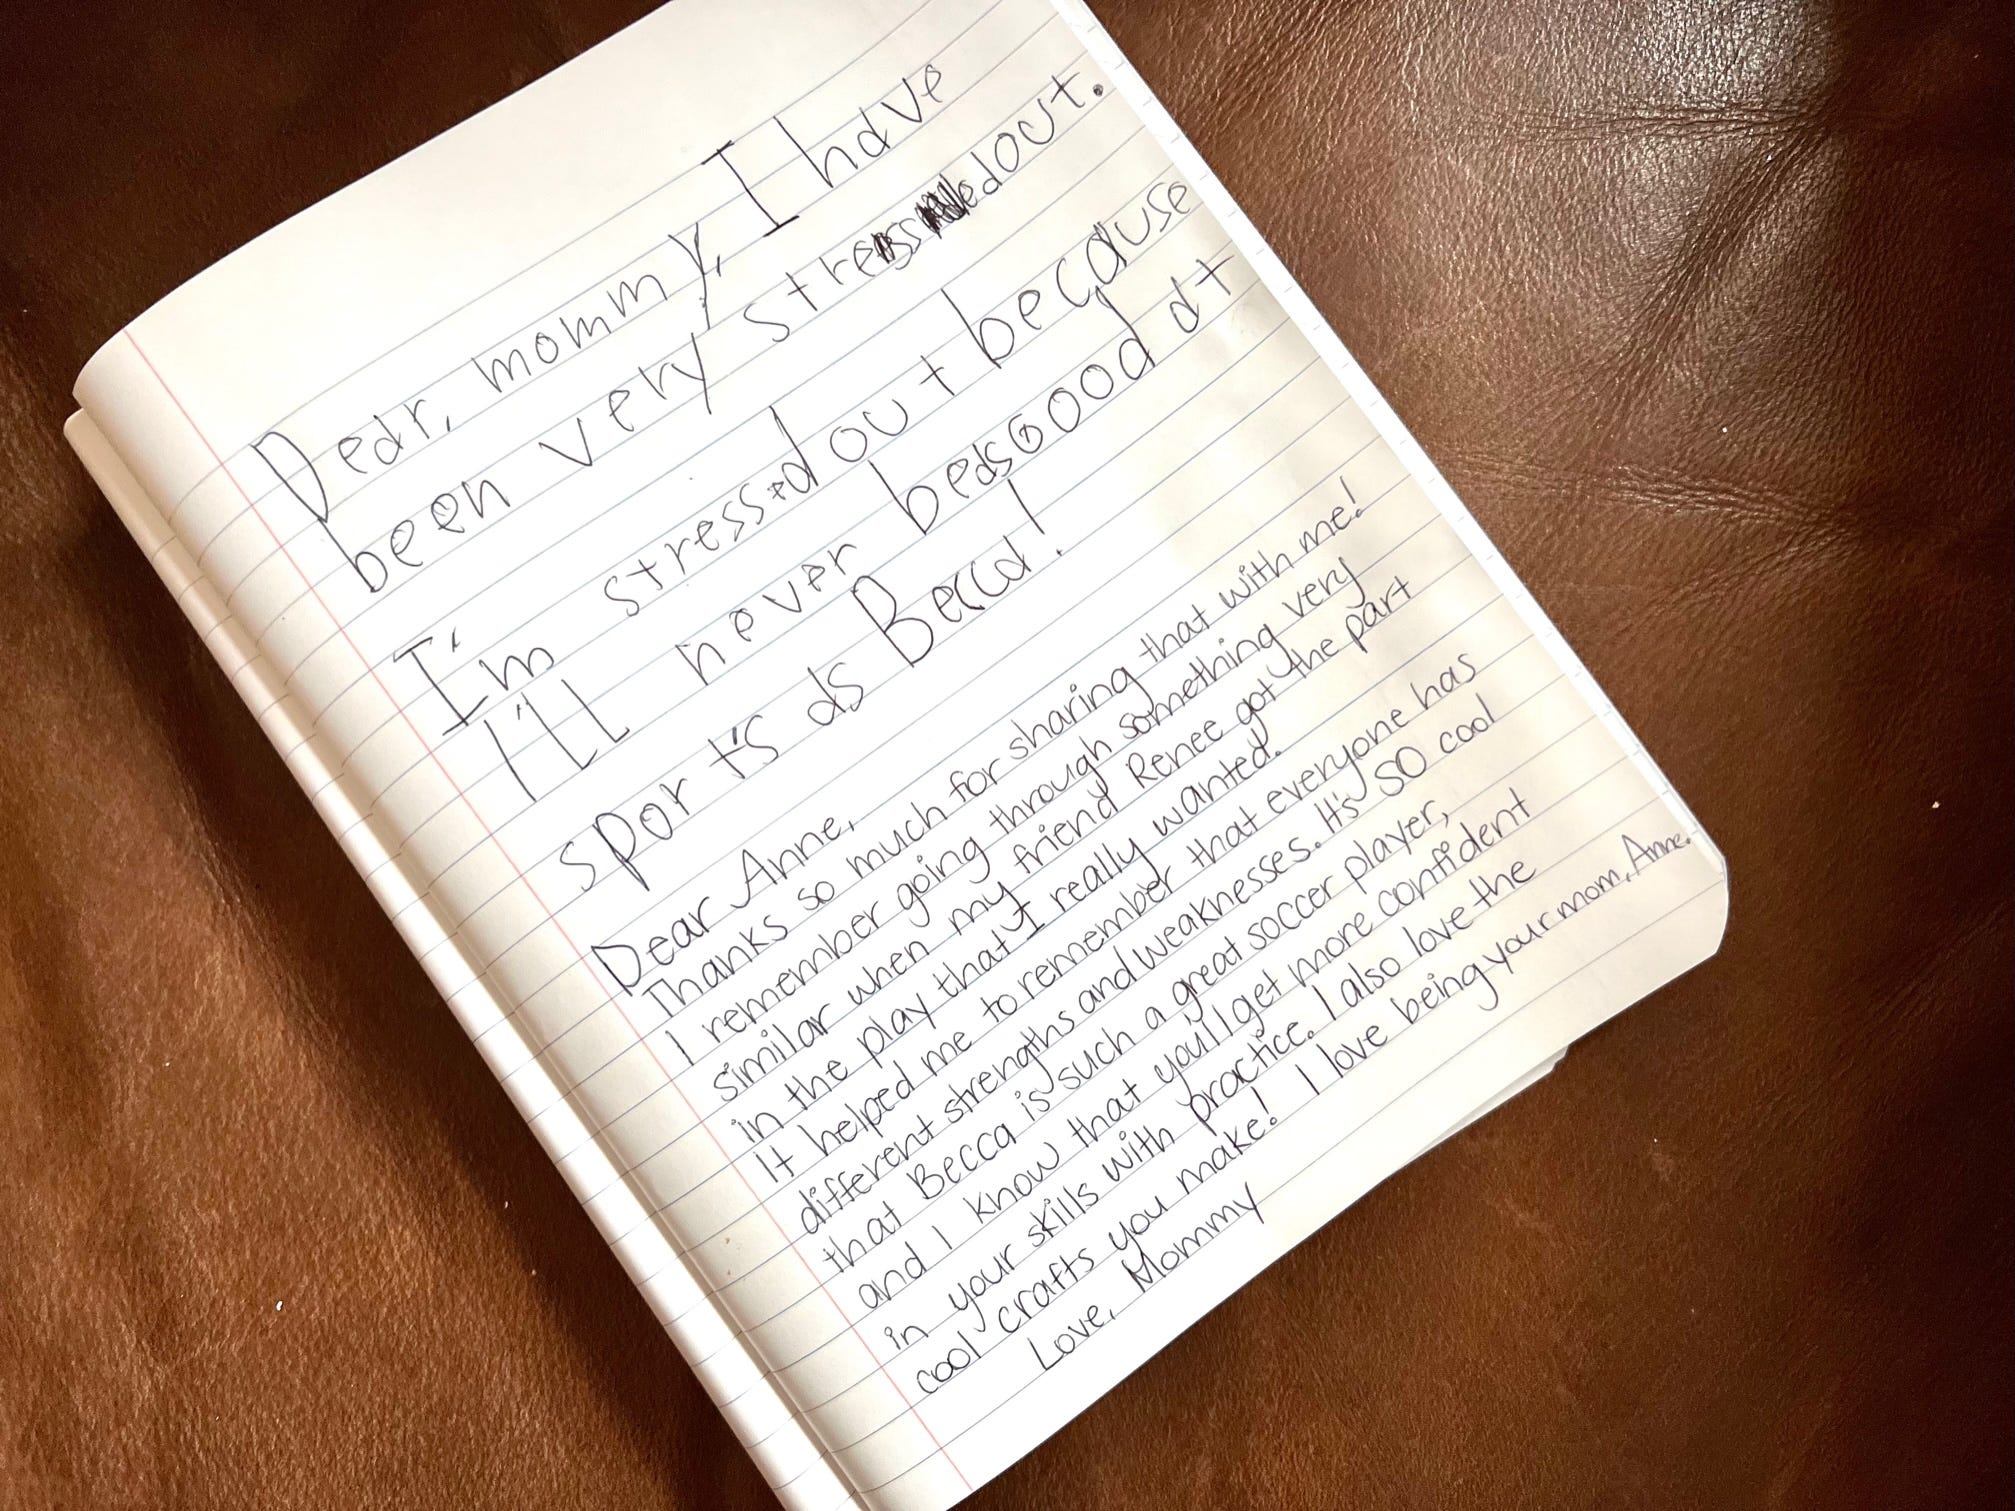 Dear, mommy, I have
been very stressedout.
I'm stressed out because
I'll never beasGood at
sport's as Becca!
Dear Anne,
Thanks so much for sharing that with me!
I remember going through something very
similar when my friend Renee got the part
in the play that I really wanted.
It helped me to remember that everyone has
different strengths and weaknesses. It's SO cool
that Becca is such a great soccer player,
and I know that you'll get more confident
in your skills with practice. I also love the
cool crafts you make! I love being your mom, Anne.
Love, Mommy